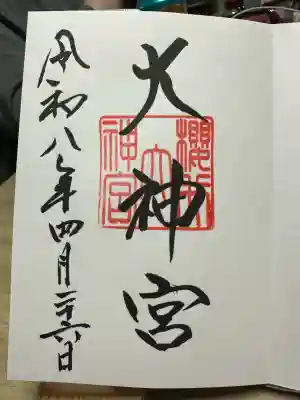 大神宮
令和八年四月二十六日
櫻
大
神宮